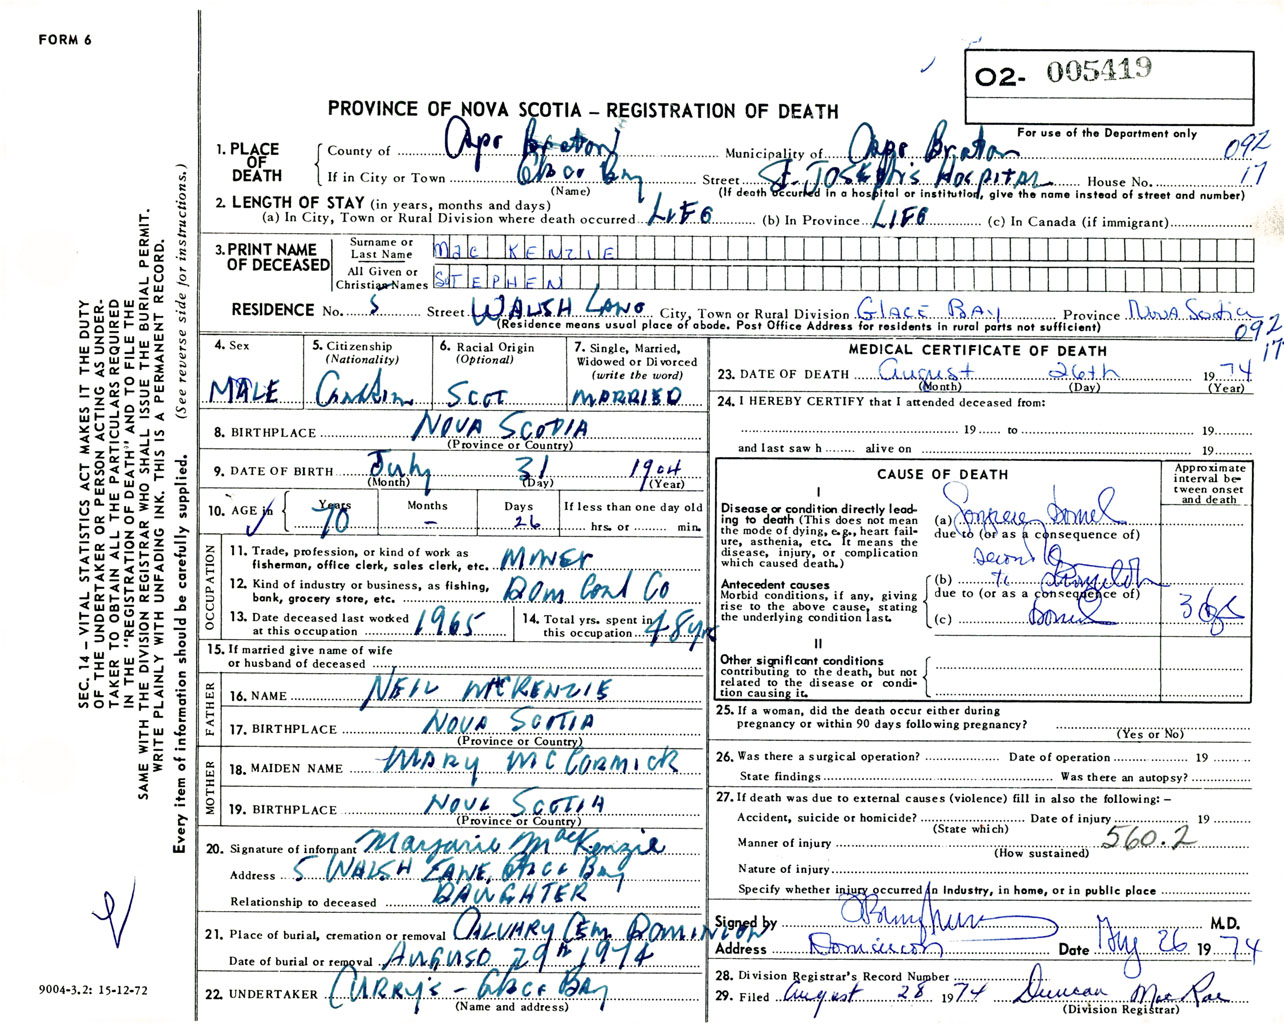 FORM 6
O2- 005419
PROVINCE OF NOVA SCOTIA – REGISTRATION OF DEATH
For use of the Department only
092
17
1. PLACE OF DEATH
County of Cape Breton Municipality of Cape Breton
If in City or Town Glace Bay Street St. JOSEPH'S HOSPITAL House No.
(Name) (If death occurred in a hospital or institution, give the name instead of street and number)
2. LENGTH OF STAY (in years, months and days)
(a) In City, Town or Rural Division where death occurred LIFE (b) In Province LIFE (c) In Canada (if immigrant)
3. PRINT NAME OF DECEASED
Surname or Last Name MacKENZIE
All Given or Christian Names STEPHEN
RESIDENCE No. 5 Street WALSH LANE City, Town or Rural Division GLACE BAY Province NOVA SCOTIA
(Residence means usual place of abode. Post Office Address for residents in rural parts not sufficient)
092
17
SEC. 14 – VITAL STATISTICS ACT MAKES IT THE DUTY
OF THE UNDERTAKER OR PERSON ACTING AS UNDER-
TAKER TO OBTAIN ALL THE PARTICULARS REQUIRED
IN THE "REGISTRATION OF DEATH" AND TO FILE THE
SAME WITH THE DIVISION REGISTRAR WHO SHALL ISSUE THE BURIAL PERMIT.
WRITE PLAINLY WITH UNFADING INK. THIS IS A PERMANENT RECORD.
Every item of information should be carefully supplied. (See reverse side for instructions.)
4. Sex
MALE
5. Citizenship
(Nationality)
6. Racial Origin
(Optional)
SCOT
7. Single, Married,
Widowed or Divorced
(write the word)
MARRIED
8. BIRTHPLACE NOVA SCOTIA
(Province or Country)
9. DATE OF BIRTH July 31 1904
(Month) (Day) (Year)
10. AGE in
Years Months Days If less than one day old
70 – 26 hrs. or min.
OCCUPATION
11. Trade, profession, or kind of work as
fisherman, office clerk, sales clerk, etc. MINER
12. Kind of industry or business, as fishing,
bank, grocery store, etc. Dom Coal Co
13. Date deceased last worked
at this occupation 1965
14. Total yrs. spent in
this occupation 48 yrs
15. If married give name of wife
or husband of deceased
FATHER
16. NAME NEIL McKENZIE
17. BIRTHPLACE NOVA SCOTIA
(Province or Country)
MOTHER
18. MAIDEN NAME MARY McCORMICK
19. BIRTHPLACE NOVA SCOTIA
(Province or Country)
20. Signature of informant Marjorie MacKenzie
Address 5 WALSH LANE, Glace Bay
Relationship to deceased DAUGHTER
21. Place of burial, cremation or removal CALVARY Cem. DOMINION
Date of burial or removal August 29th 1974
22. UNDERTAKER CURRY'S – GLACE BAY
(Name and address)
9004-3.2: 15-12-72
MEDICAL CERTIFICATE OF DEATH
23. DATE OF DEATH August 26th 1974
(Month) (Day) (Year)
24. I HEREBY CERTIFY that I attended deceased from:
19 to 19
and last saw h alive on 19
CAUSE OF DEATH
Approximate
interval be-
tween onset
and death
I
Disease or condition directly lead-
ing to death (This does not mean
the mode of dying, e.g., heart fail-
ure, asthenia, etc. It means the
disease, injury, or complication
which caused death.)
(a) Bowel
due to (or as a consequence of)
Antecedent causes
Morbid conditions, if any, giving
rise to the above cause, stating
the underlying condition last.
(b) to
due to (or as a consequence of)
(c) Bowel 3
II
Other significant conditions
contributing to the death, but not
related to the disease or condi-
tion causing it.
25. If a woman, did the death occur either during
pregnancy or within 90 days following pregnancy?
(Yes or No)
26. Was there a surgical operation? Date of operation 19
State findings Was there an autopsy?
27. If death was due to external causes (violence) fill in also the following: –
Accident, suicide or homicide? Date of injury 19
(State which)
Manner of injury 560.2
(How sustained)
Nature of injury
Specify whether injury occurred in Industry, in home, or in public place
Signed by M.D.
Address Dominion Date Aug 26 1974
28. Division Registrar's Record Number
29. Filed August 28 1974 Duncan MacRae
(Division Registrar)